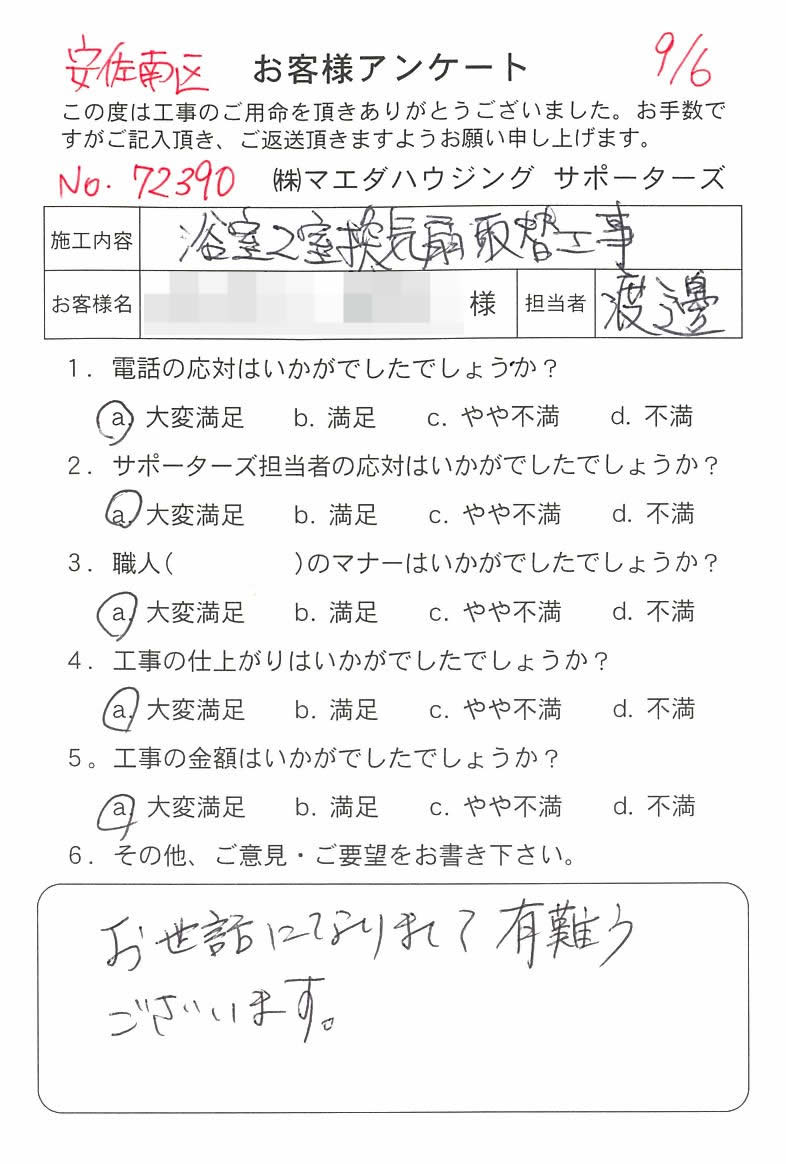 安佐南区 お客様アンケート 9/6
この度は工事のご用命を頂きありがとうございました。お手数で
すがご記入頂き、ご返送頂きますようお願い申し上げます。
No. 72390 ㈱マエダハウジング サポーターズ
施工内容 浴室2室換気扇取替工事
お客様名 様 担当者 渡邊
1. 電話の応対はいかがでしたでしょうか?
a. 大変満足 b. 満足 c. やや不満 d. 不満
2. サポーターズ担当者の応対はいかがでしたでしょうか?
a. 大変満足 b. 満足 c. やや不満 d. 不満
3. 職人( )のマナーはいかがでしたでしょうか?
a. 大変満足 b. 満足 c. やや不満 d. 不満
4. 工事の仕上がりはいかがでしたでしょうか?
a. 大変満足 b. 満足 c. やや不満 d. 不満
5。工事の金額はいかがでしたでしょうか?
a. 大変満足 b. 満足 c. やや不満 d. 不満
6. その他、ご意見・ご要望をお書き下さい。
お世話にてなりまして有難う
ございます。